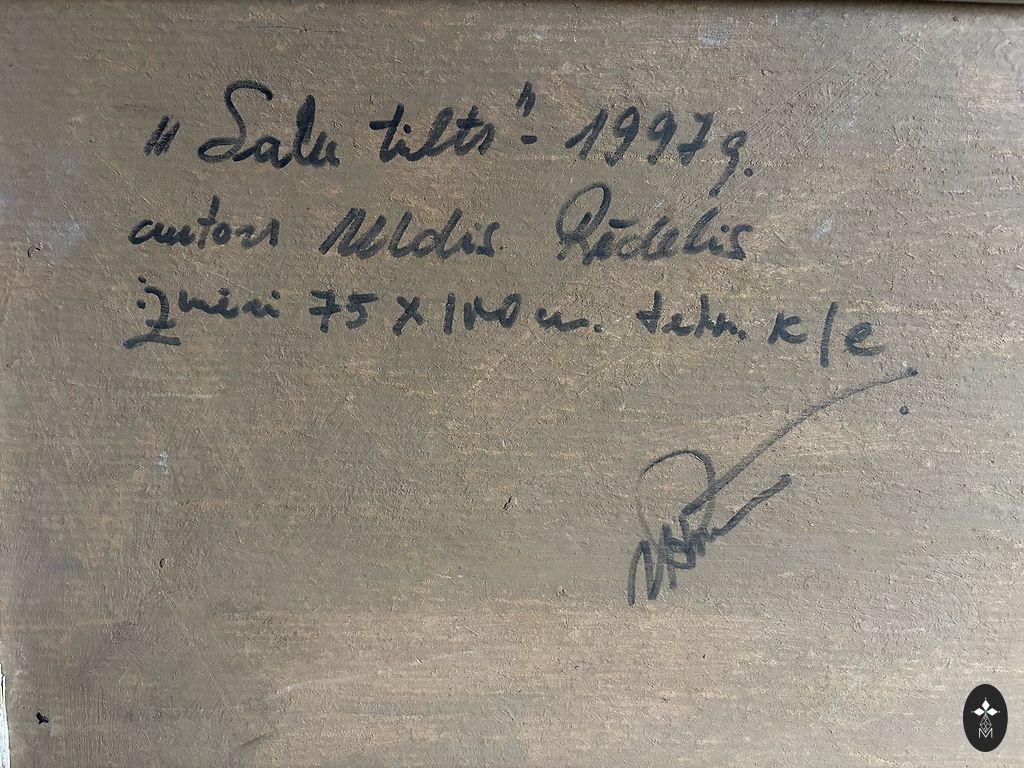 „Salu tilts"- 1997g.
autors Uldis Rēdelis
izmēri 75 X 100 cm. tehn. k/e
M